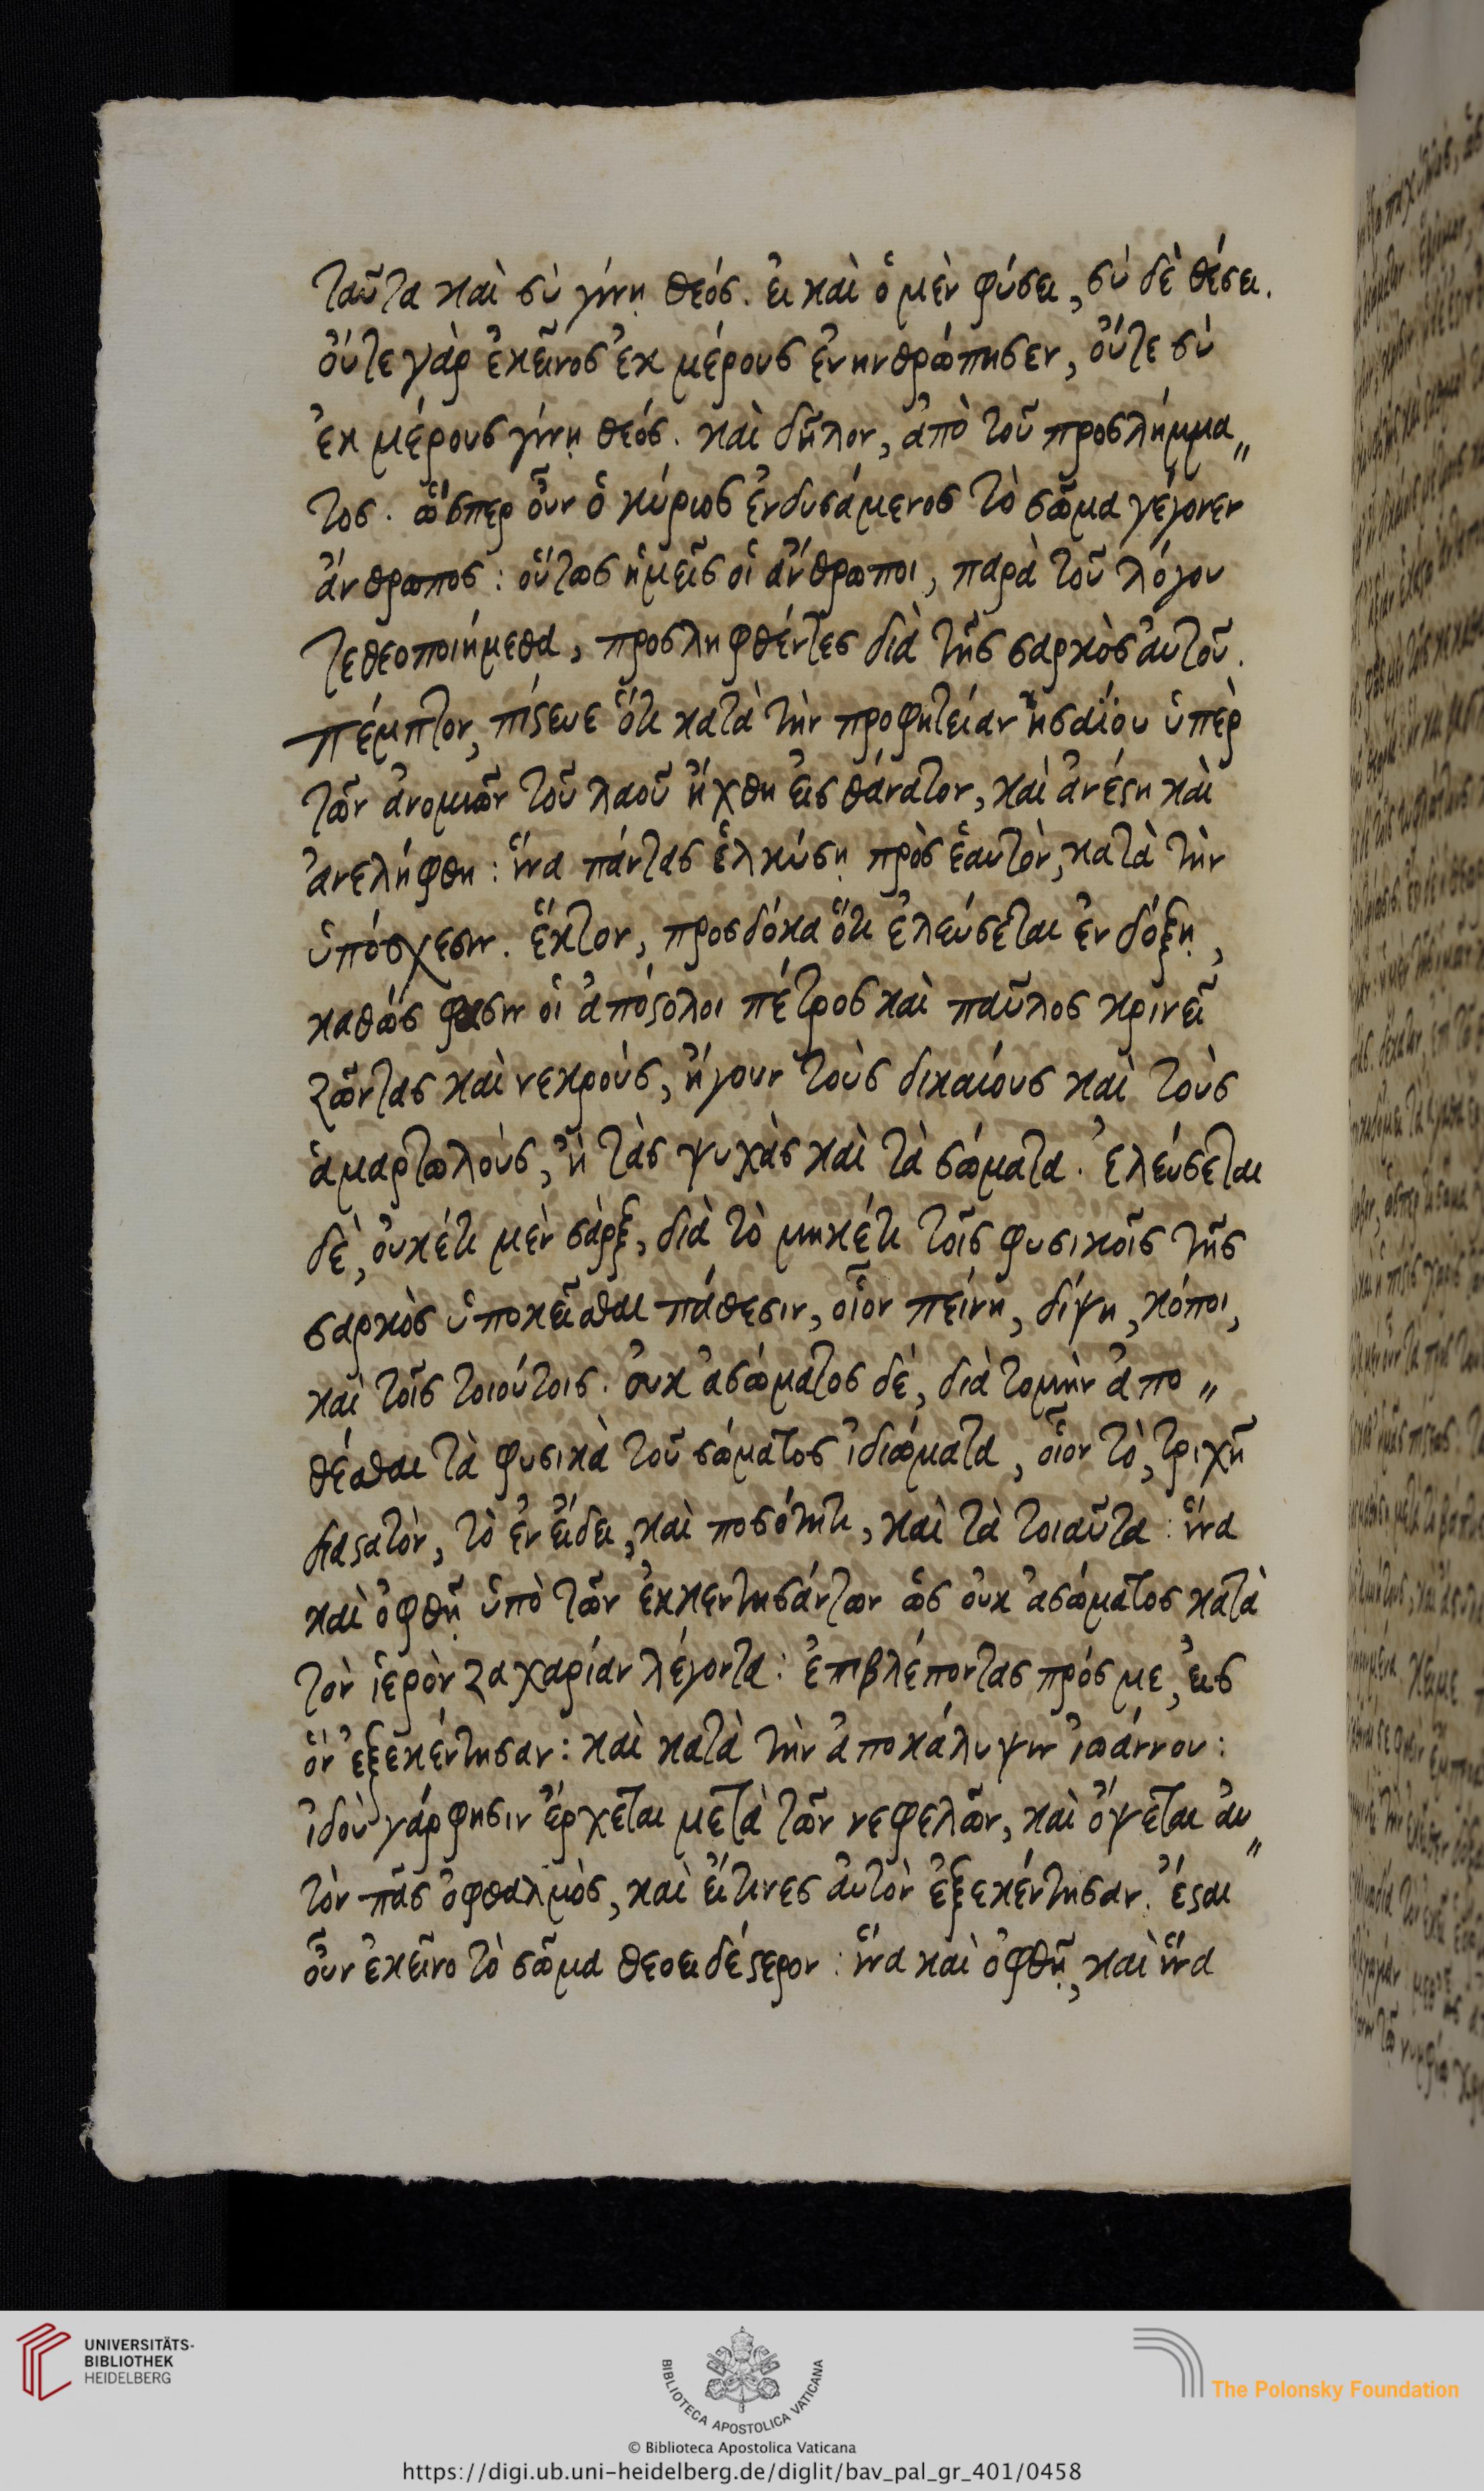 ταῦτα καὶ σὺ γίνῃ θεός. εἰ καὶ ὁ μὲν φύσει, σὺ δὲ θέσει.
οὔτε γὰρ ἐκεῖνος ἐκ μέρους ἐνηνθρώπησεν, οὔτε σὺ
ἐκ μέρους γίνῃ θεός. καὶ δῆλον, ἀπὸ τοῦ προσλήμμα„
τος. ὥσπερ οὖν ὁ κύριος ἐνδυσάμενος τὸ σῶμα γέγονεν
ἄνθρωπος: οὕτως ἡμεῖς οἱ ἄνθρωποι, παρὰ τοῦ λόγου
τεθεοποιήμεθα, προσληφθέντες διὰ τῆς σαρκὸς αὐτοῦ.
πέμπτον, πίστευε ὅτι κατὰ τὴν προφητείαν ἡσαΐου ὑπὲρ
τῶν ἀνομιῶν τοῦ λαοῦ ἤχθη εἰς θάνατον, καὶ ἀνέστη καὶ
ἀνελήφθη: ἵνα πάντας ἑλκύσῃ πρὸς ἑαυτὸν, κατὰ τὴν
ὑπόσχεσιν. ἕκτον, προσδόκα ὅτι ἐλεύσεται ἐν δόξῃ,
καθώς φασιν οἱ ἀπόστολοι πέτρος καὶ παῦλος κρινεῖ
ζῶντας καὶ νεκροὺς, ἤγουν τοὺς δικαίους καὶ τοὺς
ἁμαρτωλοὺς, ἢ τὰς ψυχὰς καὶ τὰ σώματα. ἐλεύσεται
δὲ, οὐκέτι μὲν σὰρξ, διὰ τὸ μηκέτι τοῖς φυσικοῖς τῆς
σαρκὸς ὑποκεῖσθαι πάθεσιν, οἷον πείνῃ, δίψῃ, κόποι,
καὶ τοῖς τοιούτοις. οὐκ ἀσώματος δὲ, διὰ το μὴν ἀπο„
θέσθαι τὰ φυσικὰ τοῦ σώματος ἰδιώματα, οἷον τὸ, τριχῆ
διαστατὸν, τὸ ἐν εἴδει, καὶ ποσότητι, καὶ τὰ τοιαῦτα: ἵνα
καὶ ὀφθῇ ὑπὸ τῶν ἐκκεντησάντων ὡς οὐκ ἀσώματος κατὰ
τὸν ἱερὸν ζαχαρίαν λέγοντα: ἐπιβλέποντας πρός με, εἰς
ὃν ἐξεκέντησαν: καὶ κατὰ τὴν ἀποκάλυψιν ἰωάννου:
ἰδοὺ γάρ φησιν ἔρχεται μετὰ τῶν νεφελῶν, καὶ ὄψεται αὐ„
τὸν πᾶς ὀφθαλμὸς, καὶ εἵτινες αὐτὸν ἐξεκέντησαν. ἔσται
οὖν ἐκεῖνο τὸ σῶμα θεοειδέστερον: ἵνα καὶ ὀφθῇ, καὶ ἵνα
UNIVERSITÄTS-
BIBLIOTHEK
HEIDELBERG
BIBLIOTECA APOSTOLICA VATICANA
The Polonsky Foundation
© Biblioteca Apostolica Vaticana
https://digi.ub.uni-heidelberg.de/diglit/bav_pal_gr_401/0458